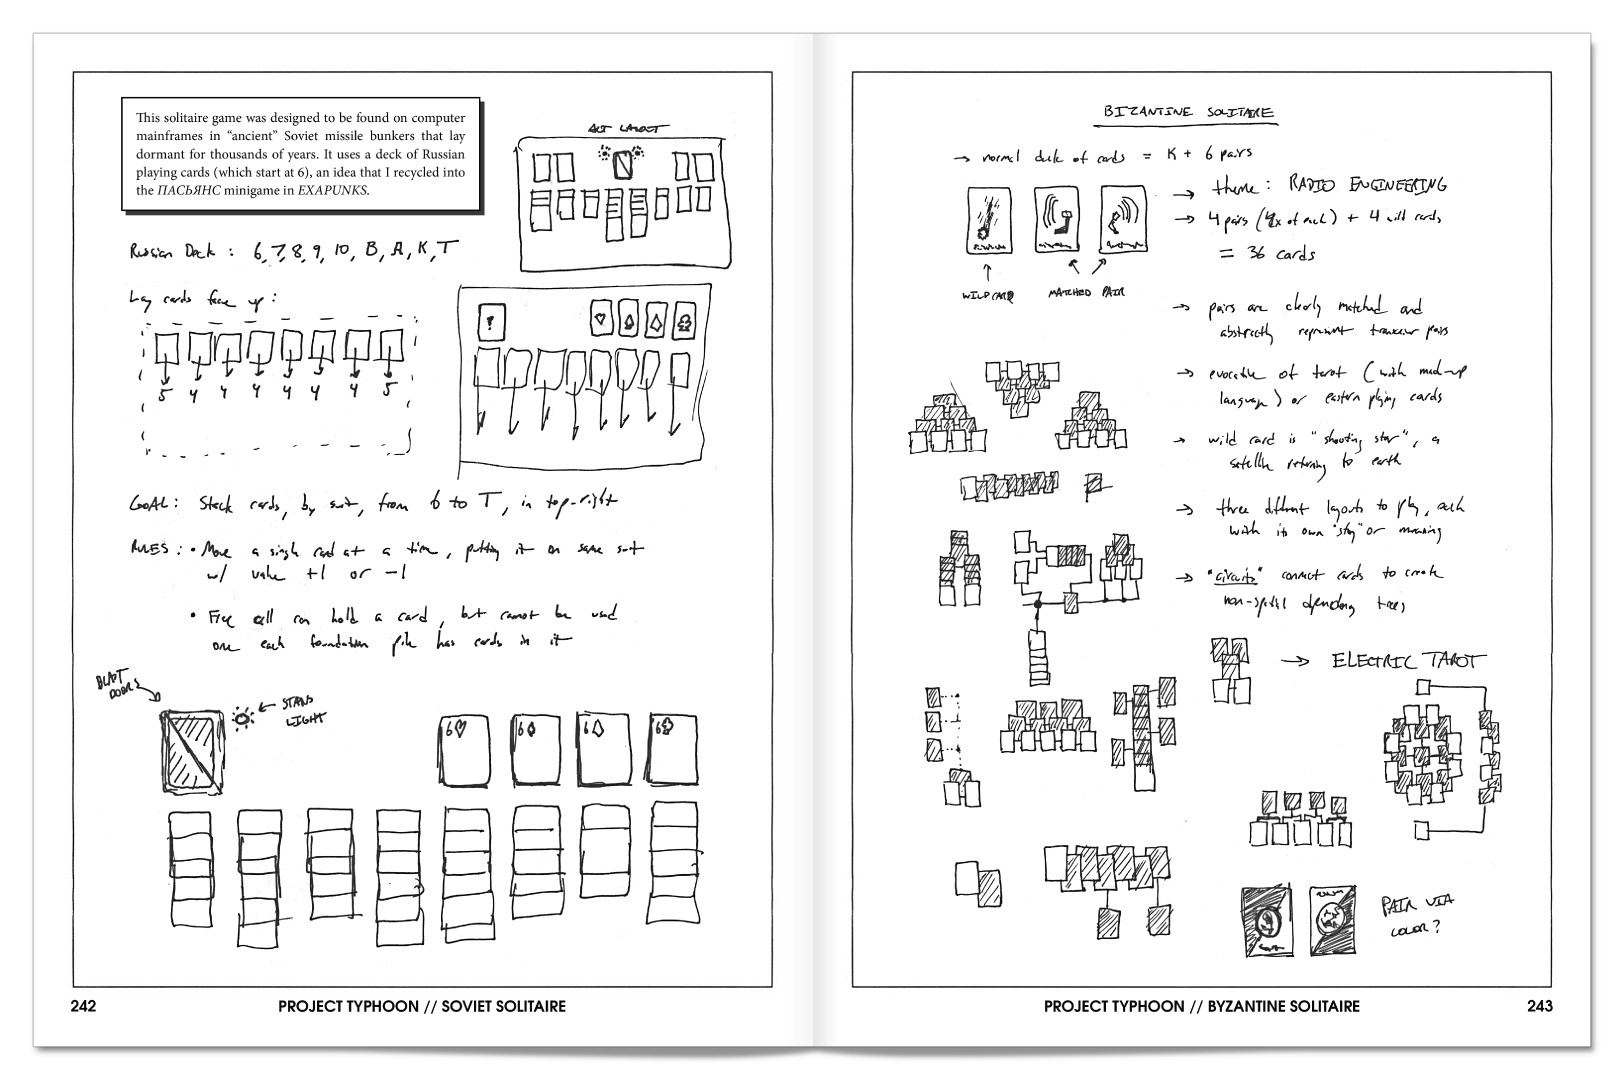 This solitaire game was designed to be found on computer
mainframes in “ancient” Soviet missile bunkers that lay
dormant for thousands of years. It uses a deck of Russian
playing cards (which start at 6), an idea that I recycled into
the ПАСЬЯНС minigame in EXAPUNKS.
ALT LAYOUT
Russian Deck : 6, 7, 8, 9, 10, B, A, K, T
Lay cards face up :
5 4 4 4 4 4 4 5
?
GOAL: Stack cards, by suit, from 6 to T, in top-right
RULES : • Move a single card at a time, putting it on same suit
w/ value +1 or -1
• Free cell can hold a card, but cannot be used
one each foundation pile has cards in it
BLAST
DOORS
STATUS
LIGHT
6♡ 6♠ 6◇ 6♣
242
PROJECT TYPHOON // SOVIET SOLITAIRE
BIZANTINE SOLITAIRE
→ normal deck of cards = K + 6 pairs
→ theme : RADIO ENGINEERING
→ 4 pairs (4x of each) + 4 wild cards
= 36 cards
WILD CARD
MATCHED PAIR
→ pairs are clearly matched and
abstractly represent transceiver pairs
→ evocative of tarot (with made-up
language) or eastern playing cards
→ wild card is "shooting star", a
satellite returning to earth
→ three different layouts to play, each
with its own "story" or meaning
→ "circuits" connect cards to create
non-spatial depending trees
→ ELECTRIC TAROT
PAIR VIA
COLOR?
PROJECT TYPHOON // BYZANTINE SOLITAIRE
243